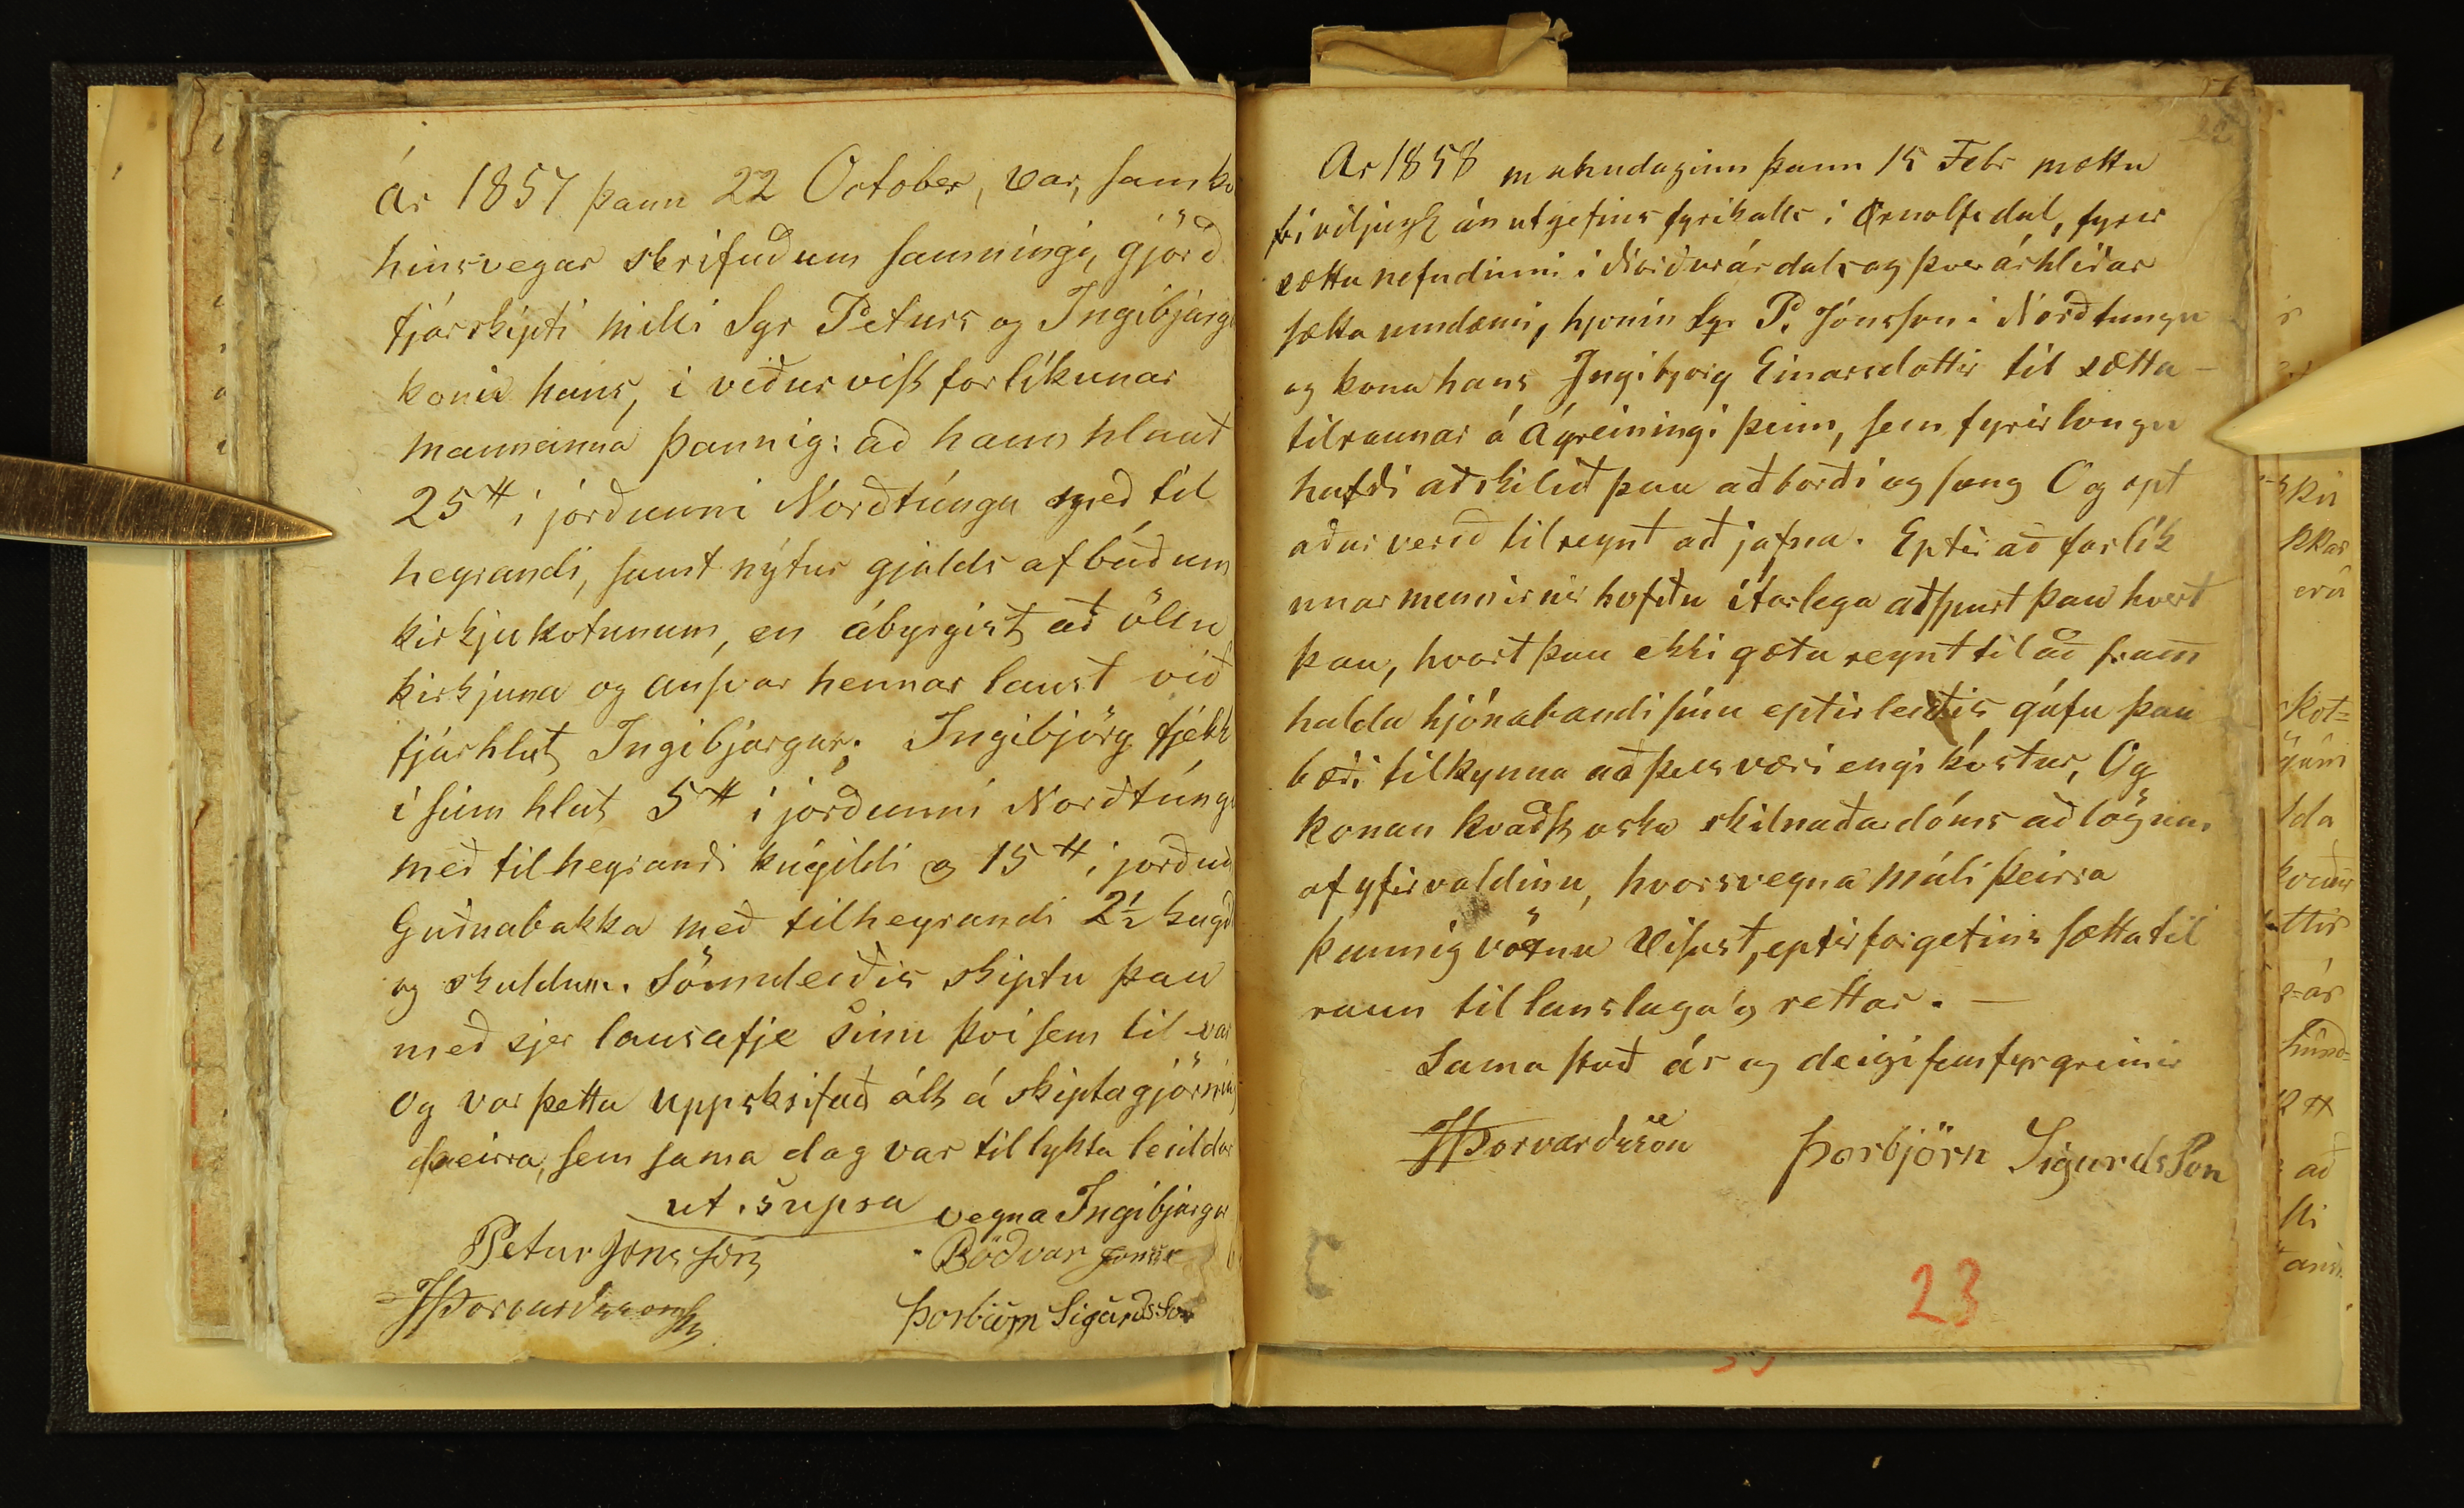 Ár 1857 þann 22 October, var, samkv
hinsvegar skrifuðum samningi, gjörð
fjárskipti milli Sgr Peturs og Ingibjargar
konu hans, í viðurvist forlíkunar
mannanna þannig: að hann hlaut
25 # í jörðunni Norðtúngu með til
heyrandi, samt nýtur gjalds af búðum
kirkjukotunum, en ábyrgist að öllu
kirkjuna og ansvar hennar laust við
fjárhlut Ingibjargar. Ingibjörg fjekk
í sinn hlut 5 # í jörðunni Norðtúngu
með tilheyrandi kúgildi og 15 # í jörðu
Guðnabakka með tilheyrandi 2½ kúgild
og skuldum. Sömuleiðis skiptu þau
með sjer lausafje sínu því sem til var
Og var þetta uppskrifað alt á skiptagjörning
þeirra, sem sama dag var til lykta leiddur
ut. supra
vegna Ingibjargar
Petur Jonsson
Böðvar Jonsson
JÞorvardsson
Þorbiörn Sigurðsson
Ar 1858 mánudaginn þann 15 Febr mættu
fríviljuglega án utgefins fyrikalls i Örnolfsdal, fyrir
sættanefndinni i Norðurárdals og Þverárhlíðar
sáttaumdæmi, hjonin Sgr P. Jónsson i Norðtungu
og kona hans Ingibjorg Einarsdottir til sætta-
tilraunar á Ágreiningi þeim, sem fyrir longu
hafði aðskilið þau að borði og sæng Og opt
aður verið tilreynt að jafna. Eptir að forlík
unarmennirnir hofðu ítarlega aðspurt þau hvert
þau, hvort þau ekki gætu reynt til að fram
halda hjónabandi sínu eptirleiðis gáfu þau
bæði tilkynna að þess væri engi kostur, Og
konan kvaðst oska skilnaðardóms að lögum
af yfirvaldinu, hvorsvegna máli þeirra
þannig vöxnu vísast, eptir forgefins sættatil
raun til landslaga og rettar. —
Sama stað ár og deigi sem fyr greinir
JÞorvarðsson Þorbjörn Sigurdsson
23